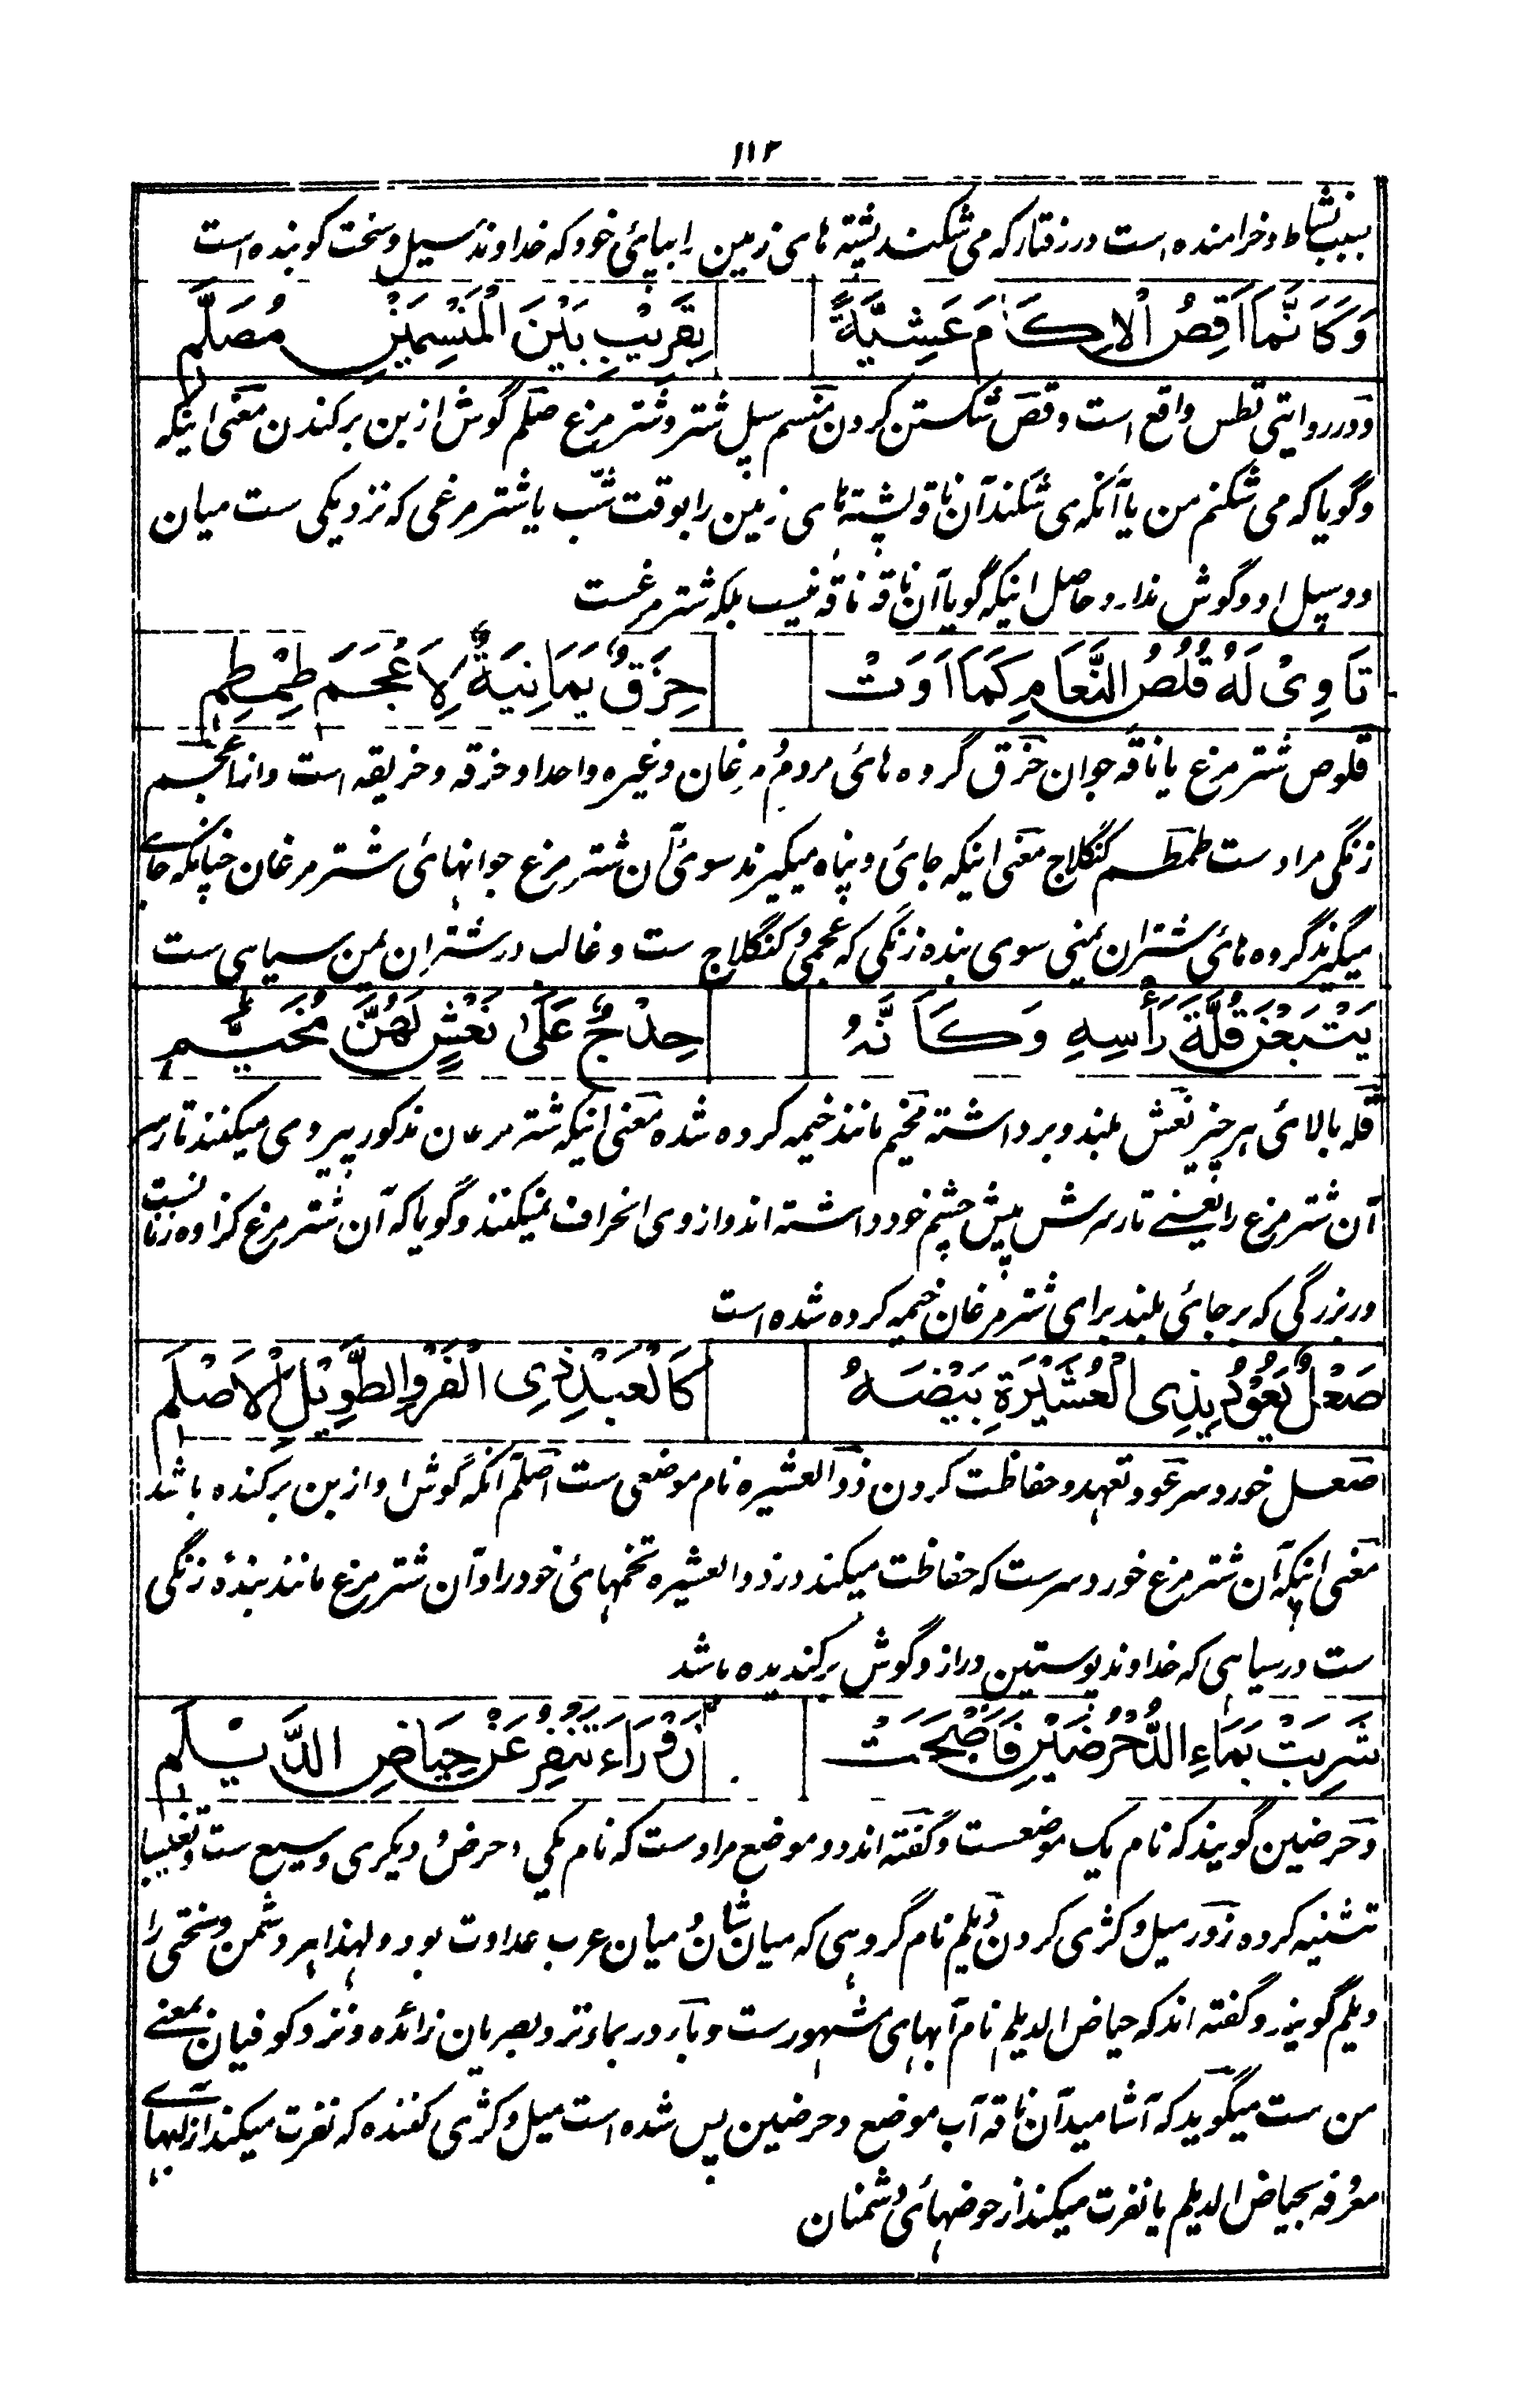 ۱۱۲
بسبب نشاط و خرامنده است در رفتار که می شکند پشته های زمین را بپائی خود که خداوند سیل و سخت کوبنده است
وَكَاَنَّمَا اَقِصُ الْاِكَامَ عَشِيَّةً بِقَرِيْبِ بَيْنَ الْمَنْسِمَيْنِ مُصَلَّمِ
و در روایتی تطس واقع است وقص شکستن کردن منسم سپل شتر و شتر مرغ صلم گوش از بن برکندن معنی اینکه
و گویا که می شکنم من یا آنکه می شکند آن ناقه پشته های زمین را بوقت شب با شتر مرغی که نزدیکی ست میان
دو سپل او و گوش ندارد حاصل اینکه گویا آن ناقه ناقه نیست بلکه شتر مرغست
تَاْوِیْ لَهُ قُلُصُ النَّعَامِ كَمَا اَوَتْ حِزَقٌ يَمَانِيَةٌ لِاَعْجَمَ طِمْطِمِ
قلوص شتر مرغ یا ناقه جوان حزق گروه های مردم و مرغان و غیره واحد او حزقه و حزیقه است و از اعجم
زنگی مراد ست طمطم گنگلاج معنی اینکه جائی و پناه میگیرند سوئی آن شتر مرغ جوانهائی شتر مرغان چنانکه جاے
میگیرند گروه هائی شتران یمنی سوی بنده زنگی که عجمی و کنگلاج ست و غالب در شتران یمن سیاهی ست
يَتْبَعْنَ قُلَّةَ رَأْسِهِ وَكَاَنَّهُ حِدْجٌ عَلَى نَعْشٍ لَهُنَّ مُخَيَّمِ
قله بالائی هر چیز نعش بلند و برداشته مخیم مانند خیمه کرده شده معنی اینکه شتر مرغان مذکور پیروی میکنند تا رسر
آن شتر مرغ را یعنے تارسرش پیش چشم خود داشته اند و از وی انحراف نمیکنند و گویا که آن شتر مرغ کزاوه زنانست
در بزرگی که بر جائی بلند برای شتر مرغان خیمه کرده شده است
صَعْلٍ يَعُوْدُ بِذِی الْعُشَيْرَةِ بَيْضَهُ كَالْعَبْدِ ذِی الْفَرْوِ الطَّوِيْلِ الْاَصْلَمِ
صعل خورد سر عود تعهد و حفاظت کردن ذو العشیره نام موضعی ست اصلم آنکه گوش او از بن برکنده باشد
معنی اینکه آن شتر مرغ خورد سرست که حفاظت میکند در ذو العشیره تخمهائی خود را و آن شتر مرغ مانند بندهٔ زنگی
ست در سیاهی که خداوند پوستین دراز و گوش برکندیده باشد
شَرِبَتْ بِمَاءِ الدُّحْرُضَيْنِ فَاَصْبَحَتْ زَوْرَاءَ تَنْفِرُ عَنْ حِيَاضِ الدَّيْلَمِ
دحرضین گویند که نام یک موضعست و گفته اند دو موضع مراد ست که نام یکی دحرض و دیگری وسیع ست و تغلیبا
تثنیه کرده زور میل و کژی کردن دیلم نام گروهی که میان شان و میان عرب عداوت بود و لهذا هر دشمن و سختی را
دیلم گویند و گفته اند که حیاض الدیلم نام آبهای مشهورست و با در بماء نزد بصریان زائده و نزد کوفیان بمعنے
من ست میگوید که آشامید آن ناقه آب موضع دحرضین پس شده است میل و کژی کننده که نفرت میکند از آبهاے
معروفه بحیاض الدیلم یا نفرت میکند از حوضهائی دشمنان